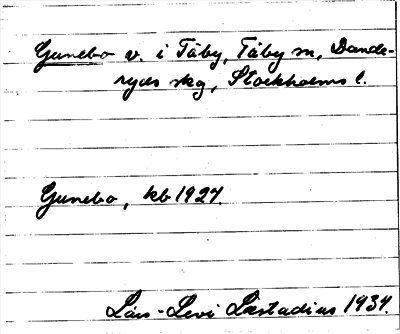 Gunebo v. i Täby, Täby sn, Dande-
ryds skg, Stockholms l.
Gunebo, kb 1927.
Lars-Levi Læstadius 1934.